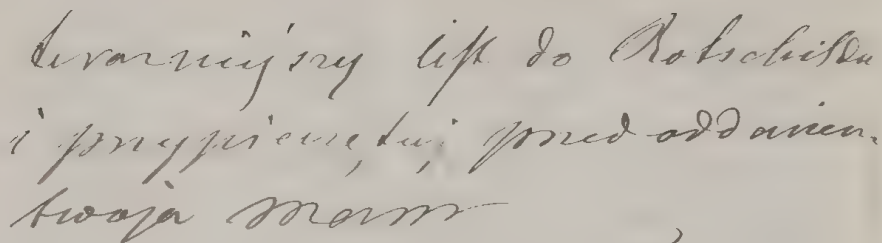 twarniejszy list do Rotschilda
i przypieczętuj przed oddaniem.
twoja Mama